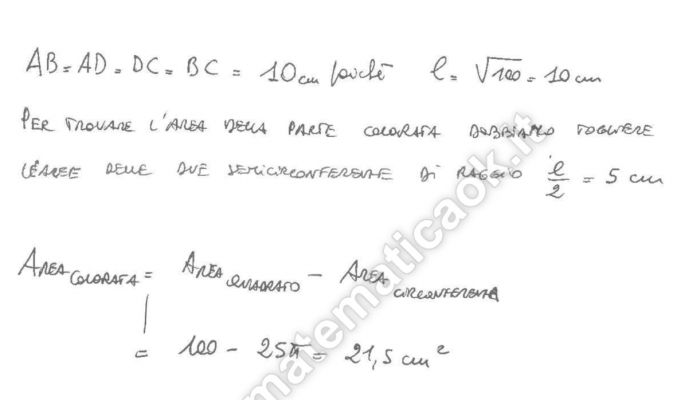 AB = AD = DC = BC = 10 cm poiché l = √100 = 10 cm
PER TROVARE L'AREA DELLA PARTE COLORATA DOBBIAMO TOGLIERE
LE AREE DELLE DUE SEMICIRCONFERENZE DI RAGGIO l/2 = 5 cm
AREA COLORATA = AREA QUADRATO - AREA CIRCONFERENZA
= 100 - 25π = 21,5 cm²
matematicaok.it